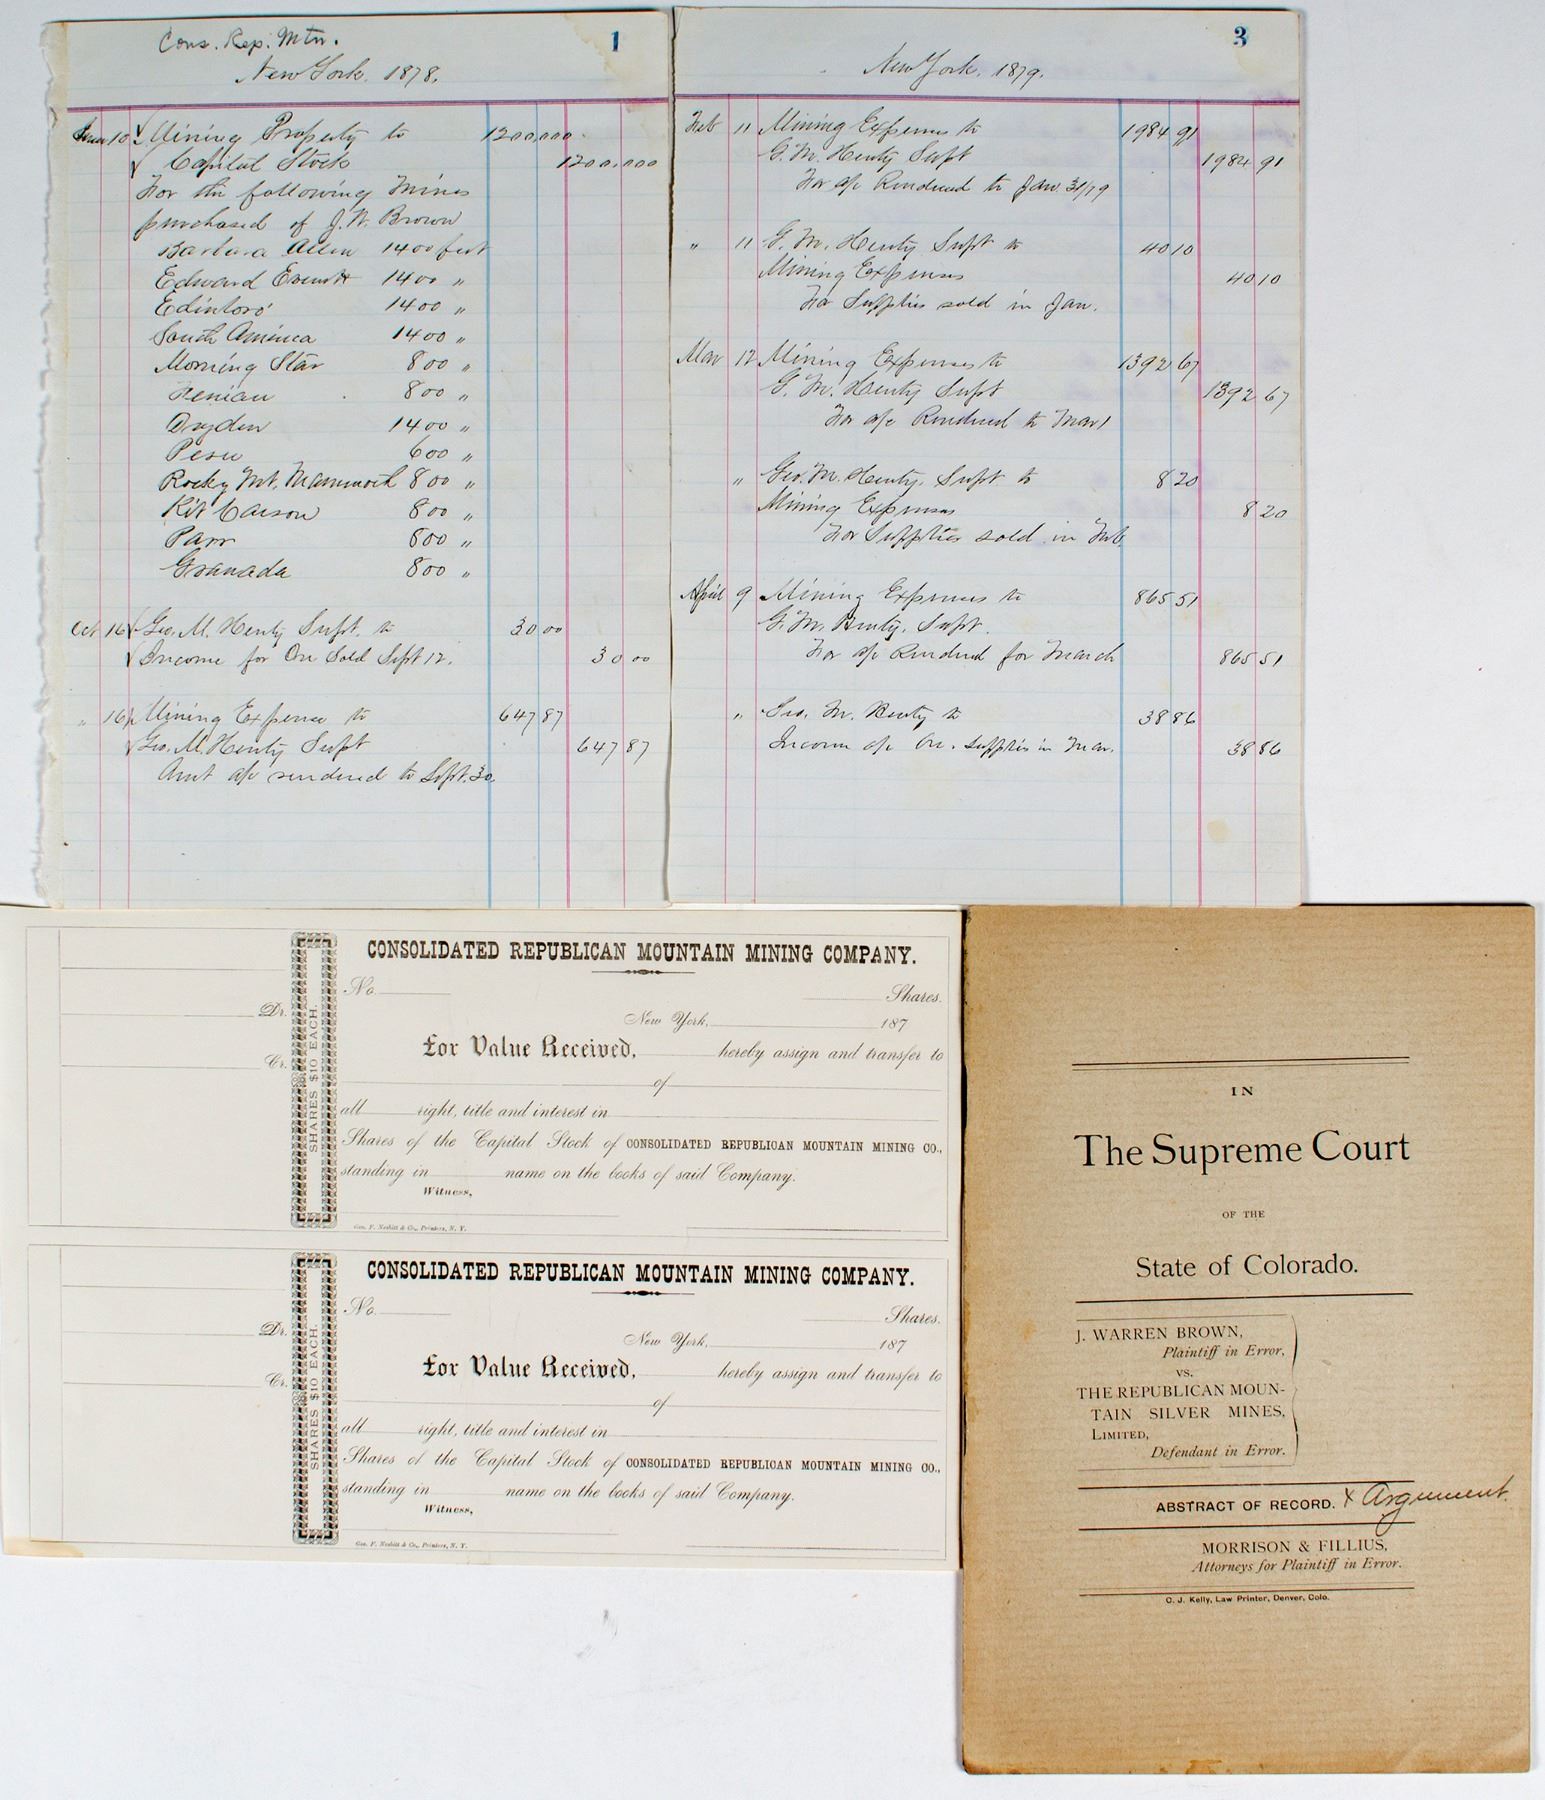 Cons. Rep. Mtn. 1
New York, 1878.
June 10 Mining Property to 1200,000
Capital Stock 1200,000
For the following Mines
purchased of J. W. Brown
Barbara Allen 1400 feet
Edward Everett 1400 "
1400 "
South America 1400 "
Morning Star 800 "
Fenian 800 "
Dryden 1400 "
Peru 600 "
Rocky Mt. Mammoth 800 "
Kit Carson 800 "
Parr 800 "
Granada 800 "
Oct 16 Geo. M. Henty Supt. to 30 00
Income for Ore Sold Sept 12. 30 00
" 16 Mining Expense to 647 87
Geo. M. Henty Supt 647 87
Amt a/c rendered to Sept. 30
3
New York, 1879.
Feb 11 Mining Expenses to 1984 91
G. M. Henty Supt 1984 91
For a/c Rendered to Jan 31/79
" 11 G. M. Henty Supt to 40 10
Mining Expenses 40 10
For Supplies sold in Jan.
Mar 12 Mining Expenses to 1392 67
G. M. Henty Supt 1392 67
For a/c Rendered to Mar 1
" Geo. M. Henty, Supt to 8 20
Mining Expenses 8 20
For Supplies sold in Feb
April 9 Mining Expenses to 865 51
G. M. Henty, Supt.
For a/c Rendered for March 865 51
" Geo. M. Henty to 38 86
Income a/c Ore. Supplies in Mar. 38 86
CONSOLIDATED REPUBLICAN MOUNTAIN MINING COMPANY.
No. Shares.
New York, 187
Dr.
For Value Received, hereby assign and transfer to
Cr.
of
SHARES $10 EACH.
all right, title and interest in
Shares of the Capital Stock of CONSOLIDATED REPUBLICAN MOUNTAIN MINING CO.,
standing in name on the books of said Company.
Witness,
Geo. F. Nesbitt & Co., Printers, N. Y.
CONSOLIDATED REPUBLICAN MOUNTAIN MINING COMPANY.
No. Shares.
New York, 187
Dr.
For Value Received, hereby assign and transfer to
Cr.
of
SHARES $10 EACH.
all right, title and interest in
Shares of the Capital Stock of CONSOLIDATED REPUBLICAN MOUNTAIN MINING CO.,
standing in name on the books of said Company.
Witness,
Geo. F. Nesbitt & Co., Printers, N. Y.
IN
The Supreme Court
OF THE
State of Colorado.
J. WARREN BROWN,
Plaintiff in Error,
VS.
THE REPUBLICAN MOUN-
TAIN SILVER MINES,
LIMITED,
Defendant in Error.
ABSTRACT OF RECORD. x Argument.
MORRISON & FILLIUS,
Attorneys for Plaintiff in Error.
C. J. Kelly, Law Printer, Denver, Colo.